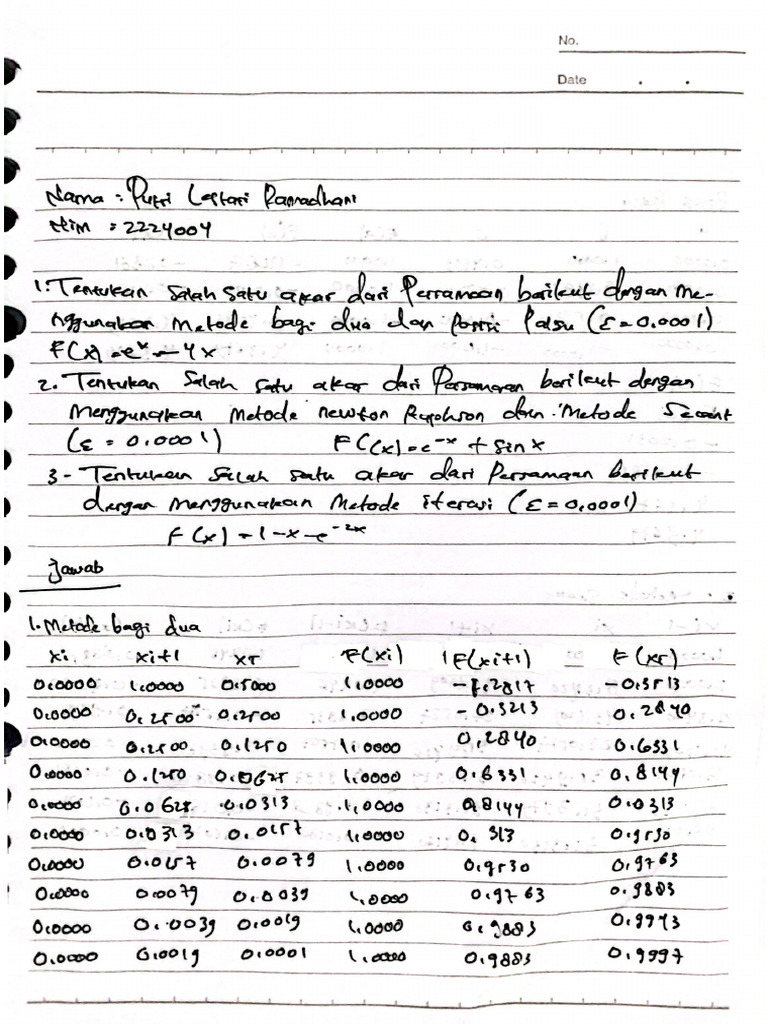 No.
Date . .
Nama : Putri Lestari Ramadhani
Nim : 2224004
1. Tentukan salah satu akar dari Persamaan berikut dengan me-
nggunakan metode bagi dua dan Posisi Palsu (ε = 0.0001)
F(x) = e^x - 4x
2. Tentukan salah satu akar dari Persamaan berikut dengan
menggunakan metode newton Raphson dan metode Secant
(ε = 0.0001) F(x) = e^-x + sin x
3 - Tentukan salah satu akar dari Persamaan berikut
dengan menggunakan metode iterasi (ε = 0,0001)
F(x) = 1 - x - e^-2x
Jawab
1. Metode bagi dua
xi xi+1 xr F(xi) F(xi+1) F(xr)
0.0000 1.0000 0.5000 1.0000 -1.2817 -0.3513
0.0000 0.2500 0.2500 1.0000 -0.3213 0.2840
0.0000 0.2500 0.1250 1.0000 0.2840 0.6331
0.0000 0.1250 0.0625 1.0000 0.6331 0.8144
0.0000 0.0625 0.0313 1.0000 0.8144 0.0313
0.0000 0.0313 0.0157 1.0000 0. 313 0.9530
0.0000 0.0157 0.0079 1.0000 0.9530 0.9763
0.0000 0.0079 0.0039 1.0000 0.9763 0.9883
0.0000 0.0039 0.0019 1.0000 0.9883 0.9943
0.0000 0.0019 0.0001 1.0000 0.9883 0.9997